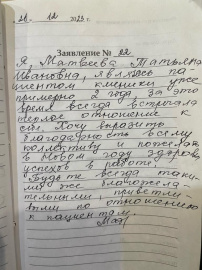 20. 12 2023г.
Заявление № 22
Я, Матвеева Татьяна
Ивановна, являюсь па
циентом клиники уже
примерно 2 года. за это
время всегда встречала
теплое отношение к
себе. Хочу выразить
благодарность всему
коллективу и пожелать
в Новом году здоровья
успехов в работе!
Будьте всегда таки
ми же благожела
тельными, приветли
выми по отношению
к пациентам.